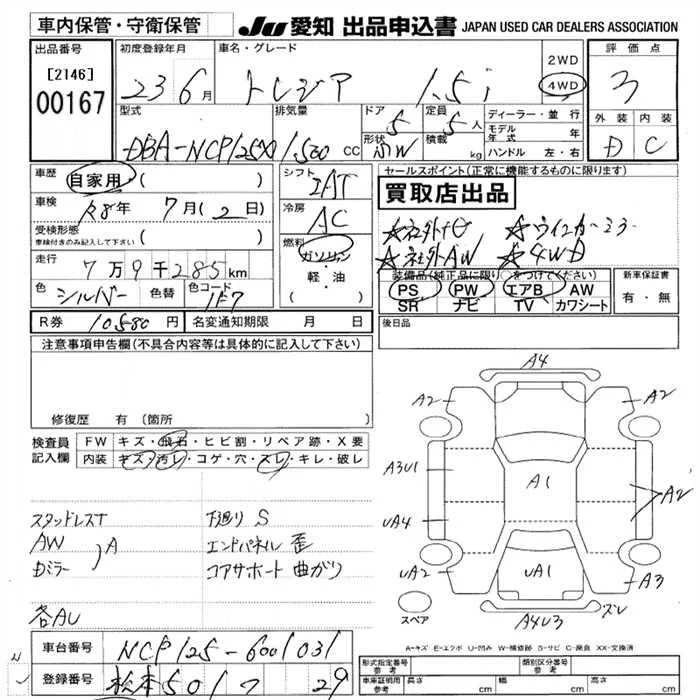 車内保管・守衛保管
JU 愛知 出品申込書 JAPAN USED CAR DEALERS ASSOCIATION
出品番号
[2146]
00167
初度登録年月
23 6月
車名・グレード
トレジア 1.5i
2WD
4WD
評価点
3
外装 内装
D C
型式
DBA-NCP125X
排気量
1500 cc
ドア
5
形状
5W
定員
5人
積載
kg
ディーラー・並行
モデル年式 年
ハンドル 左・右
車歴
自家用 ( )
車検
R8年 7月(2日)
受検形態
車検付きのみ記入して下さい ( )
走行
7万9千285km
色 シルバー 色替 色コード 1F7
シフト
IAT
冷房
AC
燃料
ガソリン
・軽・油
セールスポイント(正常に機能するものに限ります)
買取店出品
☆社外ナビ ☆ウインカーミラー
☆社外AW ☆4WD
装備品(純正品に限り○をつけてください)
PS PW エアB AW
SR ナビ TV カワシート
新車保証書
有・無
R券 10580円 名変通知期限 月 日
後日品
注意事項申告欄(不具合内容等は具体的に記入して下さい)
修復歴 有 (箇所
検査員記入欄
FW キズ・飛石・ヒビ割・リペア跡・X要
内装 キズ・汚レ・コゲ・穴・スレ・キレ・破レ
スタッドレスT
AW
Dミラー
A
各AU
下廻りS
エンドパネル 歪
コアサポート 曲がり
A4
A2 A2
A3U1 A1 A2
UA4
UA2 UA1 A3
スペア A4U3 ズレ
A=キズ E=エクボ U=凹み W=補修跡 S=サビ C=腐食 XX=交換済
車台番号 NCP125-6001031
登録番号 松本501 7 29
形式指定番号
参考
類別区分番号
参考
車庫証明用
参考
長さ cm
幅 cm
高さ cm